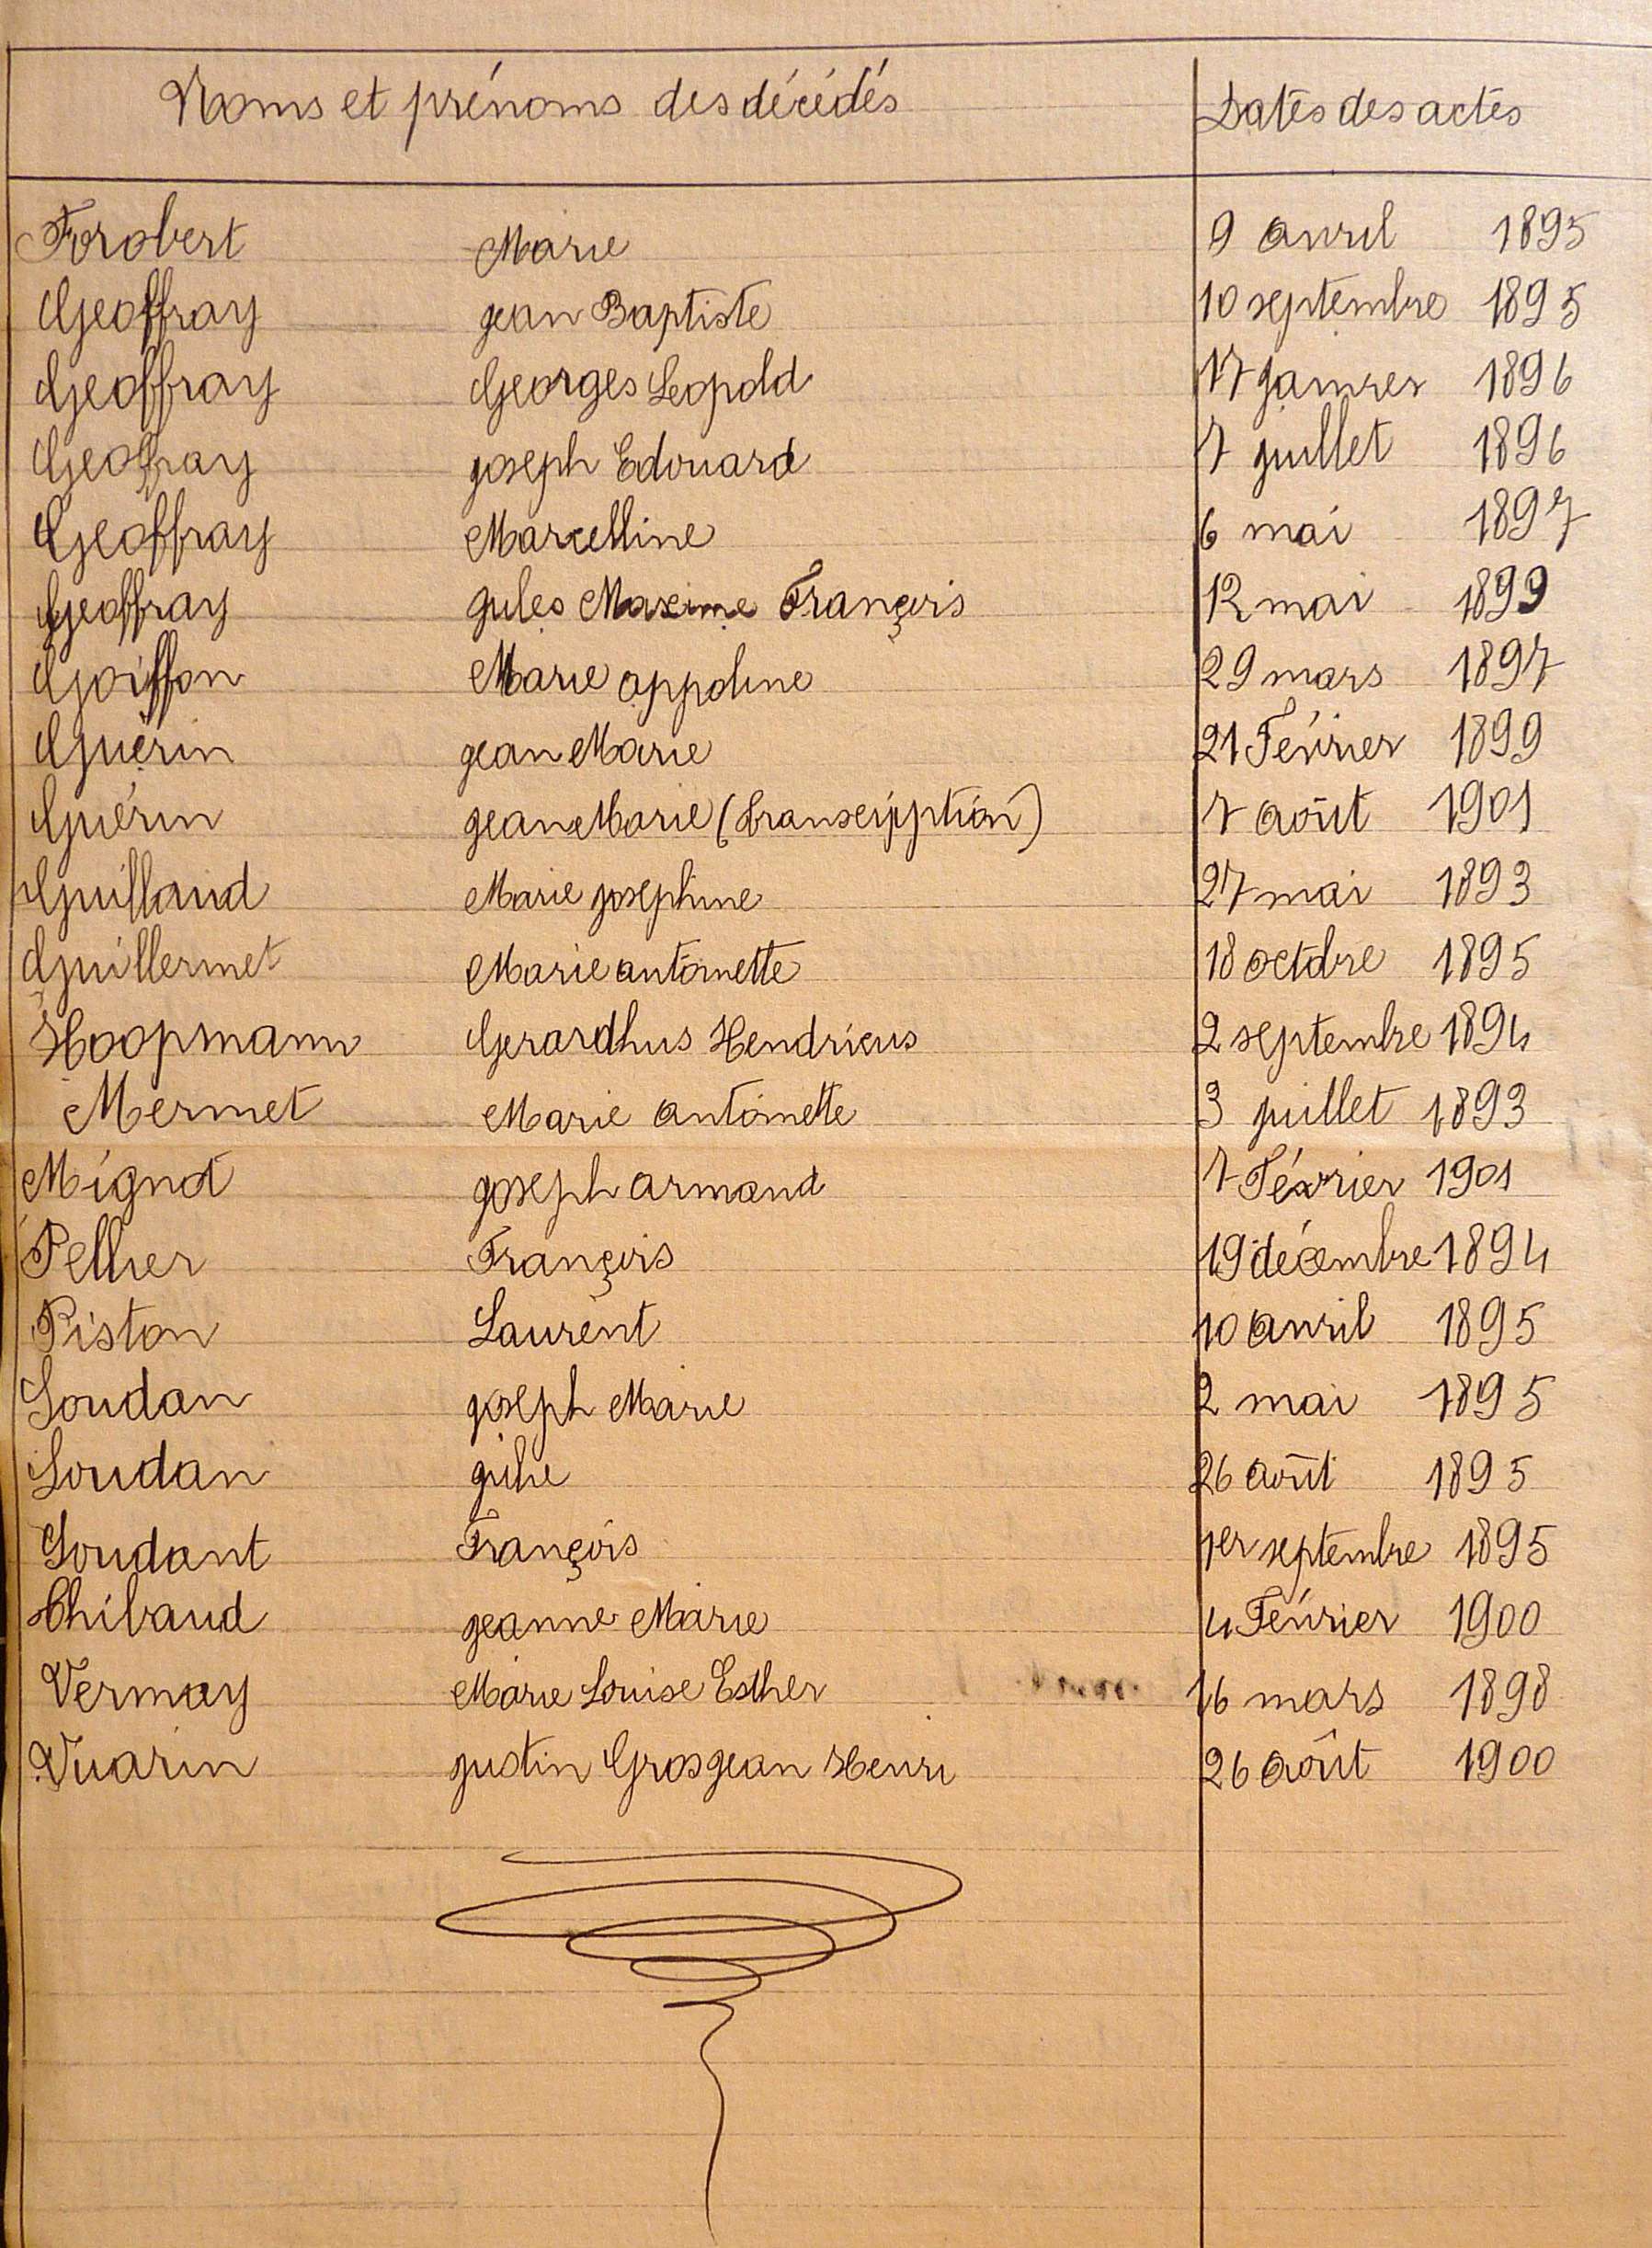 Noms et prénoms des décédés Dates des actes
Forobert Marie 9 avril 1895
Geoffray jean Baptiste 10 septembre 1895
Geoffray Georges Leopold 17 janvier 1896
Geoffray joseph Edouard 7 juillet 1896
Geoffray Marcelline 6 mai 1897
Geoffray jules Maxime François 12 mai 1899
Goiffon Marie appoline 29 mars 1897
Guérin jean Marie 21 Février 1899
Guérin jean Marie (transcripption) 7 août 1901
Guillaud Marie josephine 27 mai 1893
Guillermet Marie antoinette 18 octobre 1895
Hoopmann Gerardhus Hendricus 2 septembre 1894
Mermet Marie antoinette 3 juillet 1893
Mignot joseph armand 7 Février 1901
Pellier François 19 décembre 1894
Piston Laurent 10 avril 1895
Soudan joseph Marie 2 mai 1895
Soudan julie 26 août 1895
Soudant François 1er septembre 1895
Thibaud jeanne Marie 4 Février 1900
Vermay Marie Louise Esther 16 mars 1898
Vuarin justin Grosjean Henri 26 août 1900